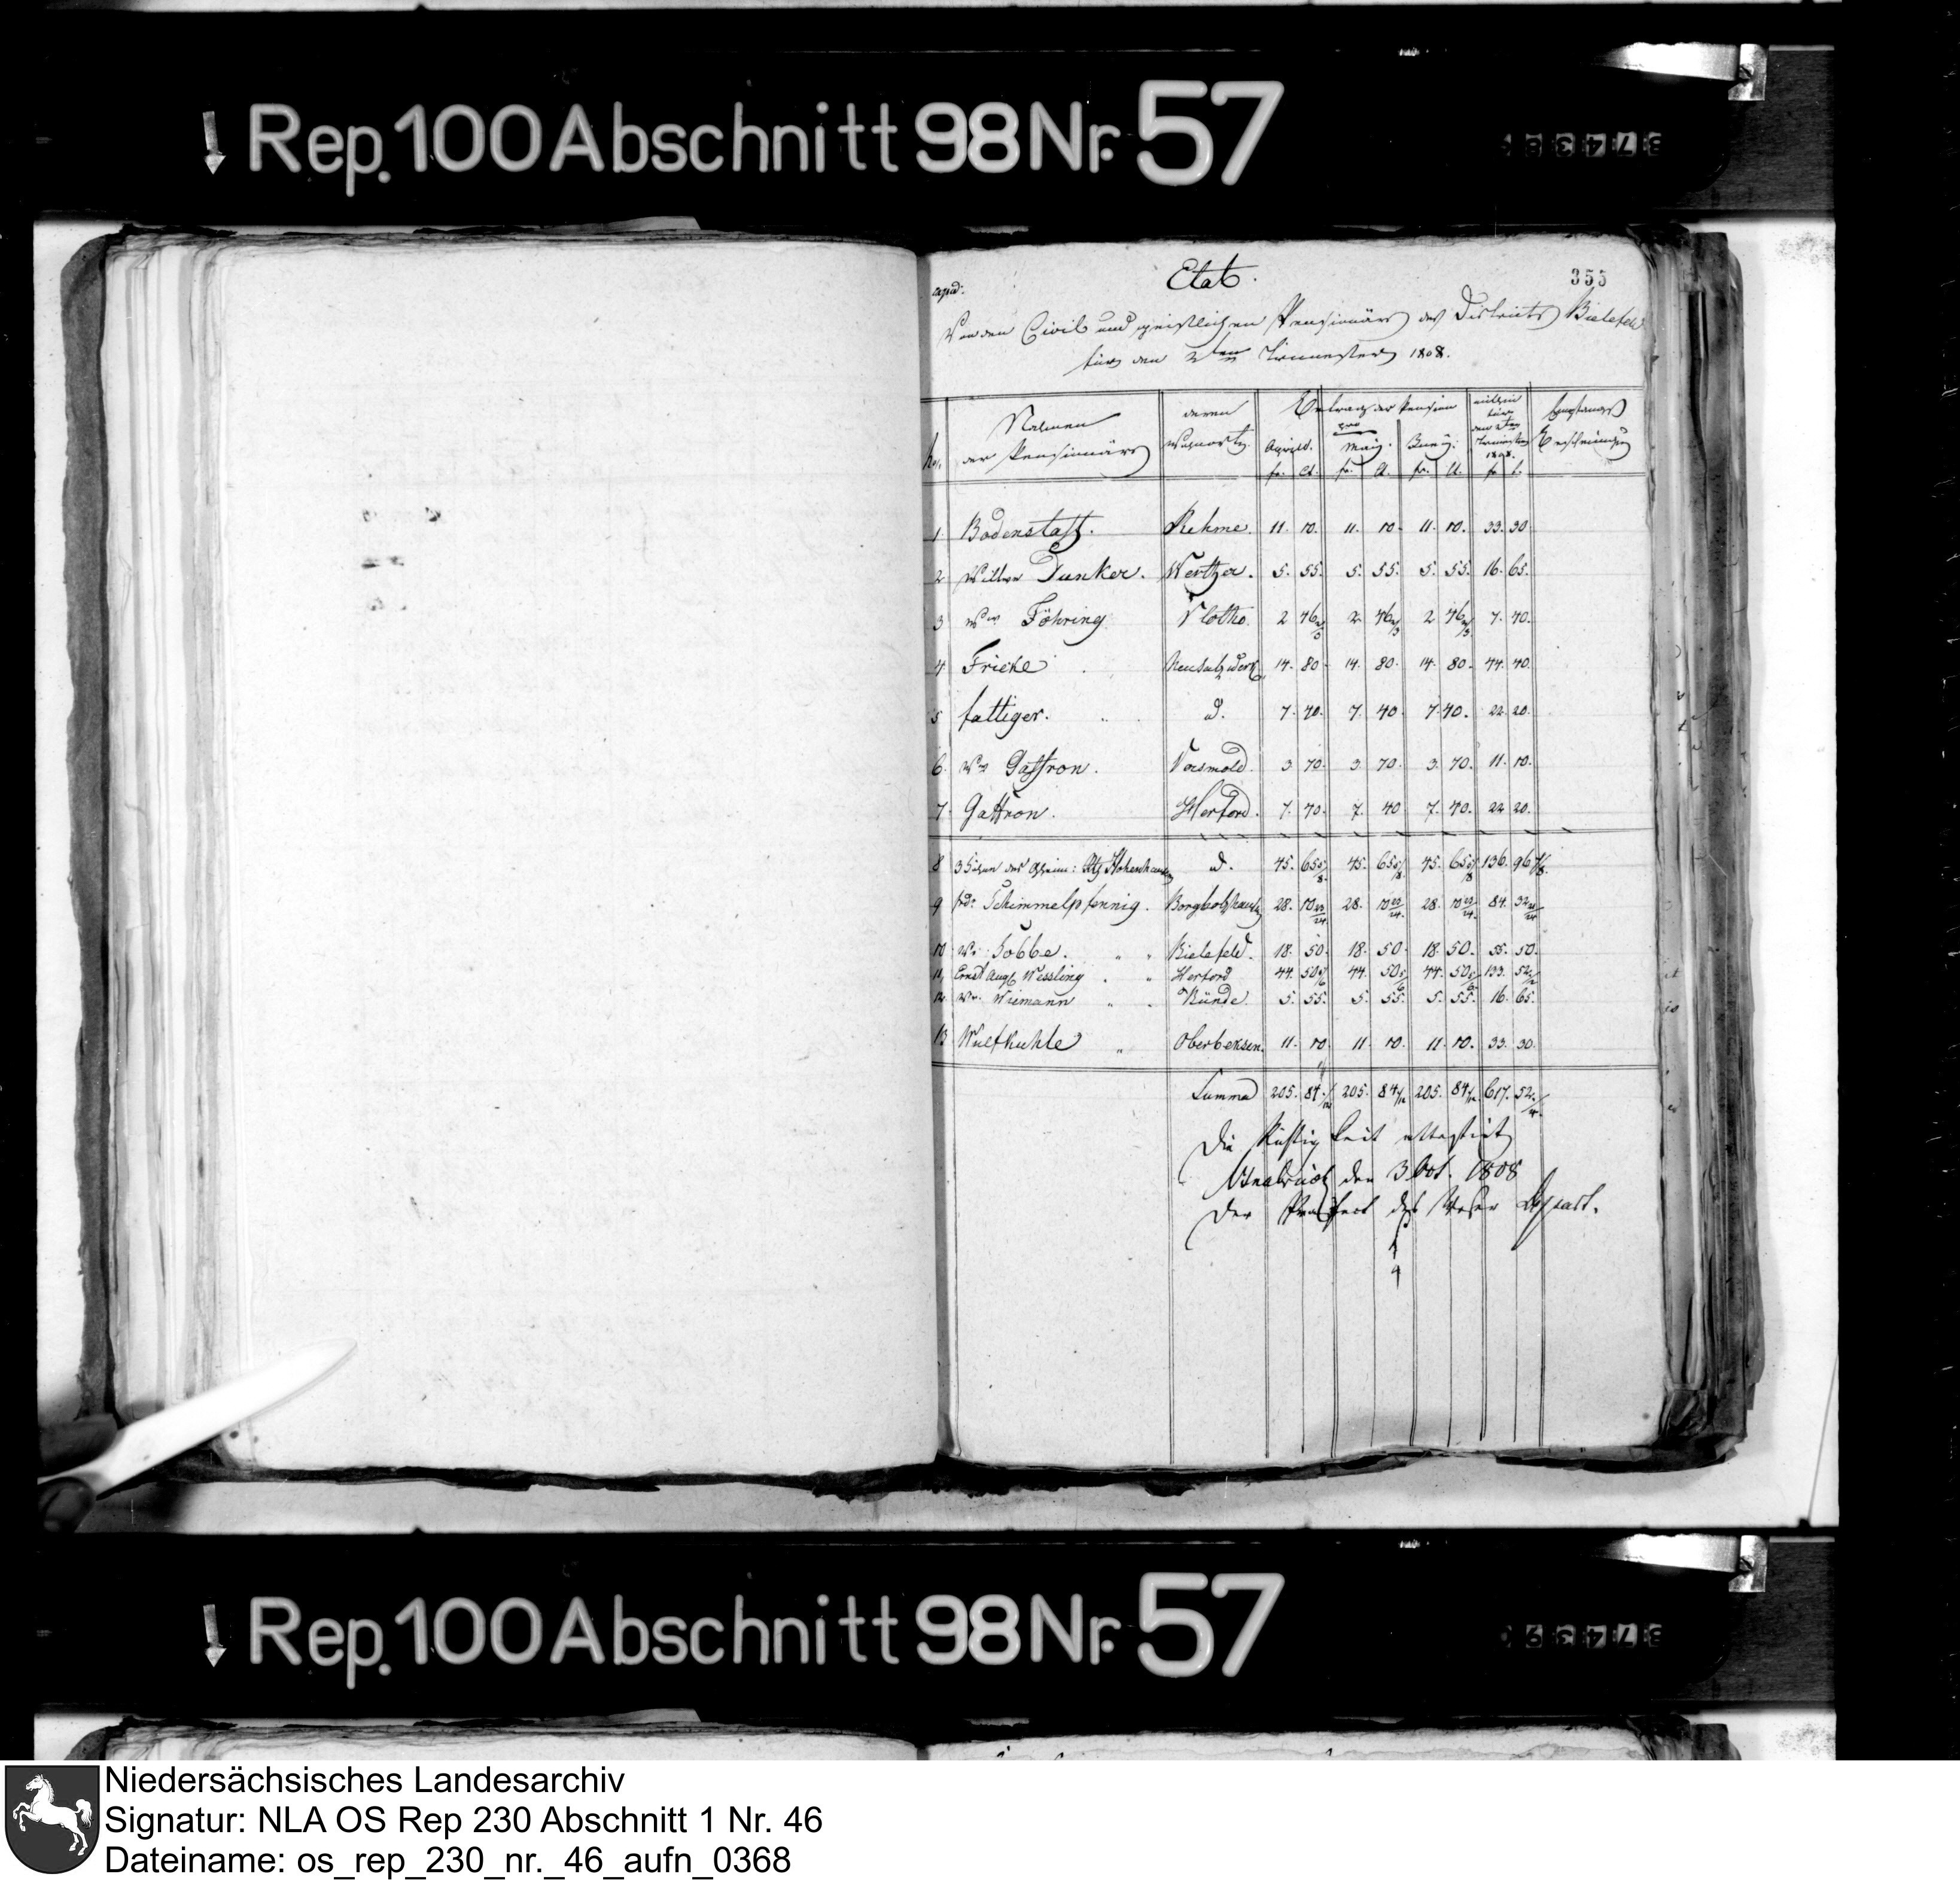 Rep. 100 Abschnitt 98 Nr. 57
355
Etat.
Von den Civil und geistlichen Pensionärs des Districts Bielefeld
für den 2ten Trimester 1808.
No. Nahmen der Pensionärs deren Wohnorte Betrag der Pension pro April. May. Juny. den 2ten Trimester 1808. Empfangs Bescheinigung
fr. Ct. fr. Ct. fr. Ct. fr. Ct.
1 Bodenstaff. Rehme. 11. 10. 11. 10. 11. 10. 33. 30
2 Dunker. Werther. 5. 55. 5. 55. 5. 55. 16. 65.
3 Ww Föhring Vlotho. 2 46 2/3 2 46 2/3 2 46 2/3 7. 40.
4 Fricke Neusalzwerk 14. 80 14. 80. 14. 80. 44. 40.
5 fattiger. d. 7. 40. 7. 40 7. 40. 22. 20.
6. Ww Gaffron. Versmold. 3. 70. 3. 70. 3. 70. 11. 10.
7. Gaffron. Herford. 7. 40. 7. 40 7. 40. 22 20.
8 d. 45. 65 5/8 45. 65 5/8 45. 65 5/8 136. 96 7/8.
9 Schimmelpfennig. Borgholzhausen 28. 10 28. 10 28. 10 84. 32
10 Ww. Tobbe. Bielefeld. 18. 50. 18. 50. 18. 50. 55. 50.
11, Ernst Aug. Wessling Herford 44. 50 5/6 44. 50 5/6 44. 50 5/6 133. 52 1/2
12. Ww. Wiemann Bünde. 5. 55. 5. 55. 5. 55. 16. 65.
13 Wulfkuhle Oberbeksen. 11. 10. 11. 10. 11. 10. 33. 30.
Summa 205. 84 205. 84 205. 84 617. 52
Die Richtigkeit attestirt
Osnabrück den 3 Oct. 1808
Der Praefect des Weser Depart.
Rep. 100 Abschnitt 98 Nr. 57
Niedersächsisches Landesarchiv
Signatur: NLA OS Rep 230 Abschnitt 1 Nr. 46
Dateiname: os_rep_230_nr._46_aufn_0368